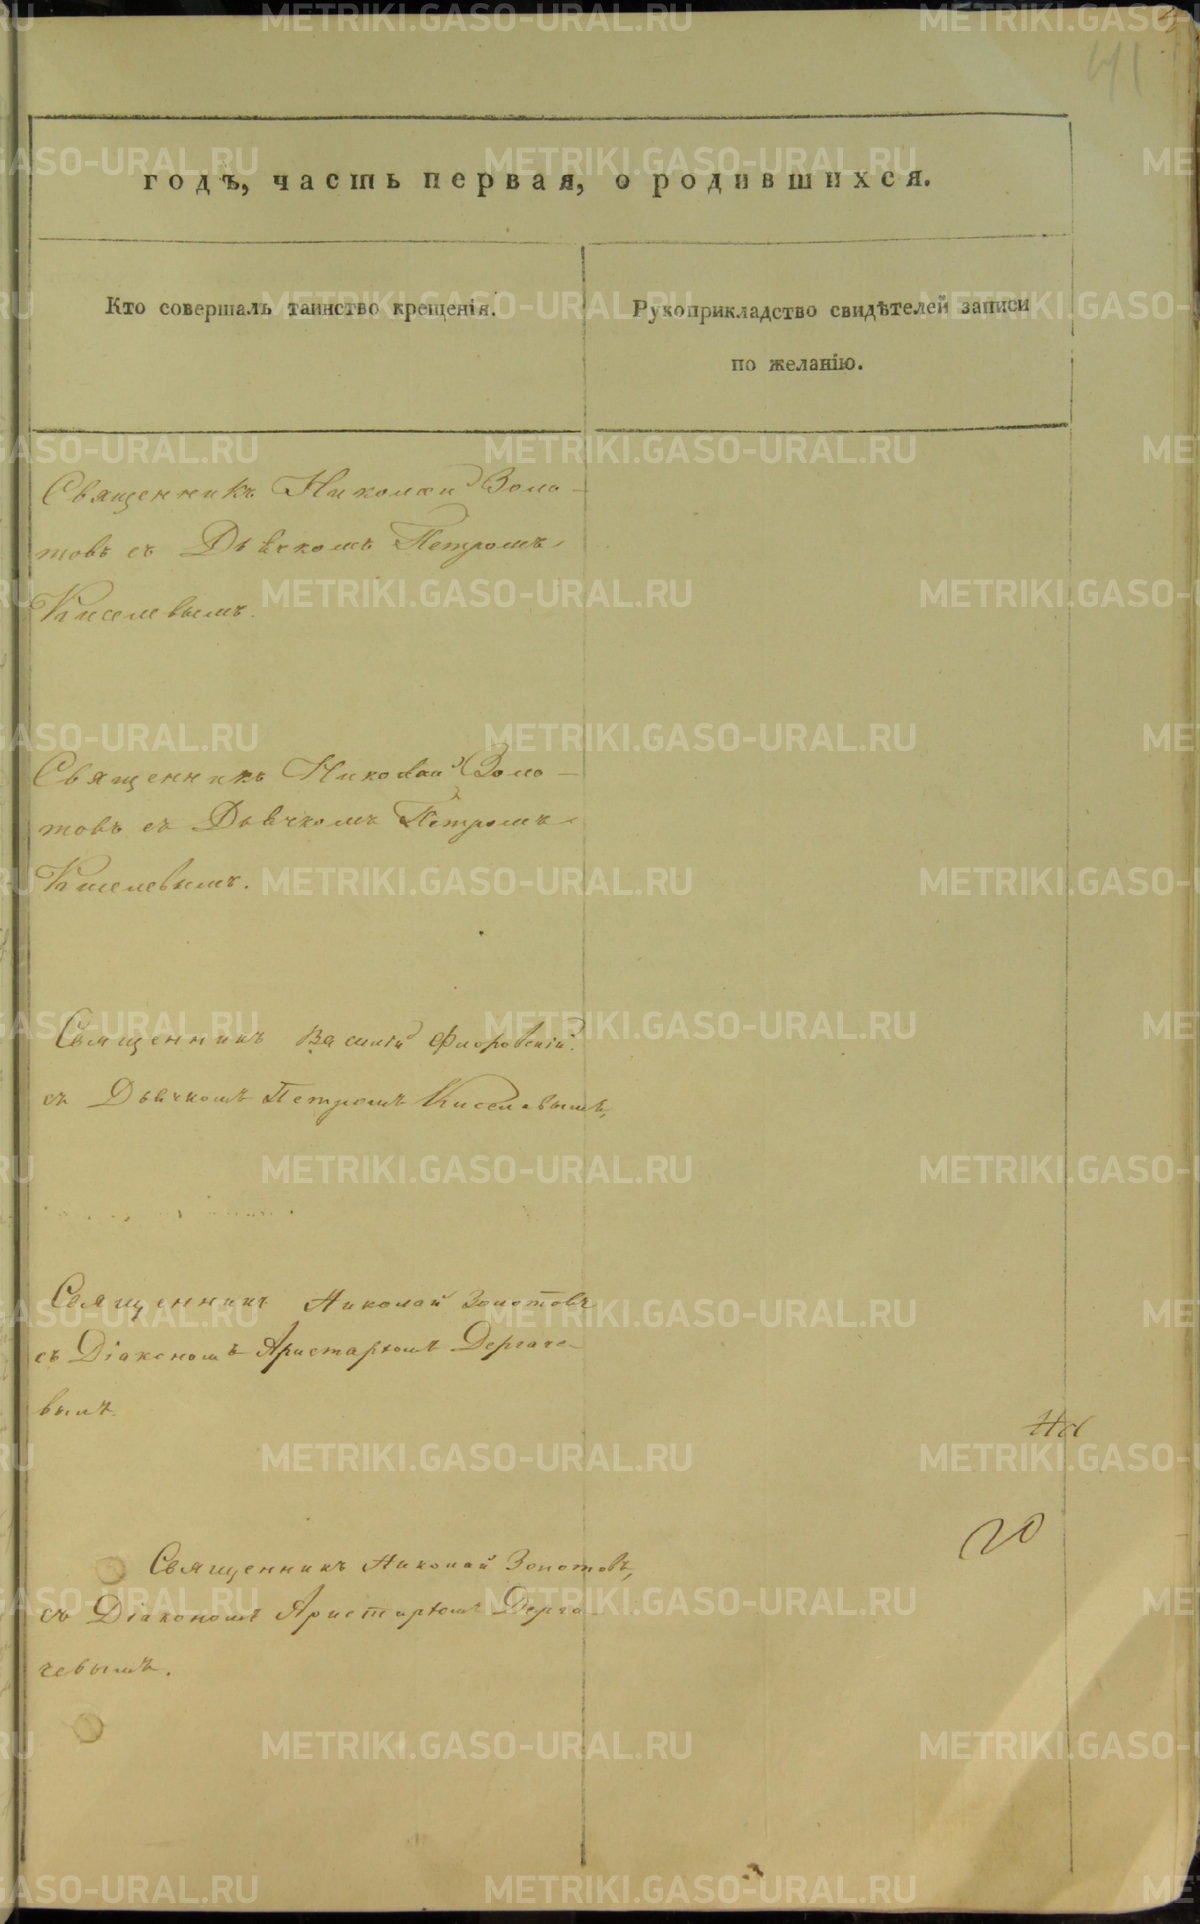 41
годъ, часть первая, о родившихся.
Кто совершалъ таинство крещенія.
Рукоприкладство свидѣтелей записи
по желанію.
Священникъ Николай Золо-
товъ съ Дьячкомъ Петромъ
Киселевымъ.
Священникъ Николай Золо-
товъ съ Дьячкомъ Петромъ
Киселевымъ.
Священникъ Василій Флоровскій
съ Дьячкомъ Петромъ Киселевымъ,
Священникъ Николай Золотовъ
съ Діакономъ Аристархомъ Дергаче-
вымъ.
На
Священникъ Николай Золотовъ,
съ Діакономъ Аристархомъ Дерга-
чевымъ.
METRIKI.GASO-URAL.RU